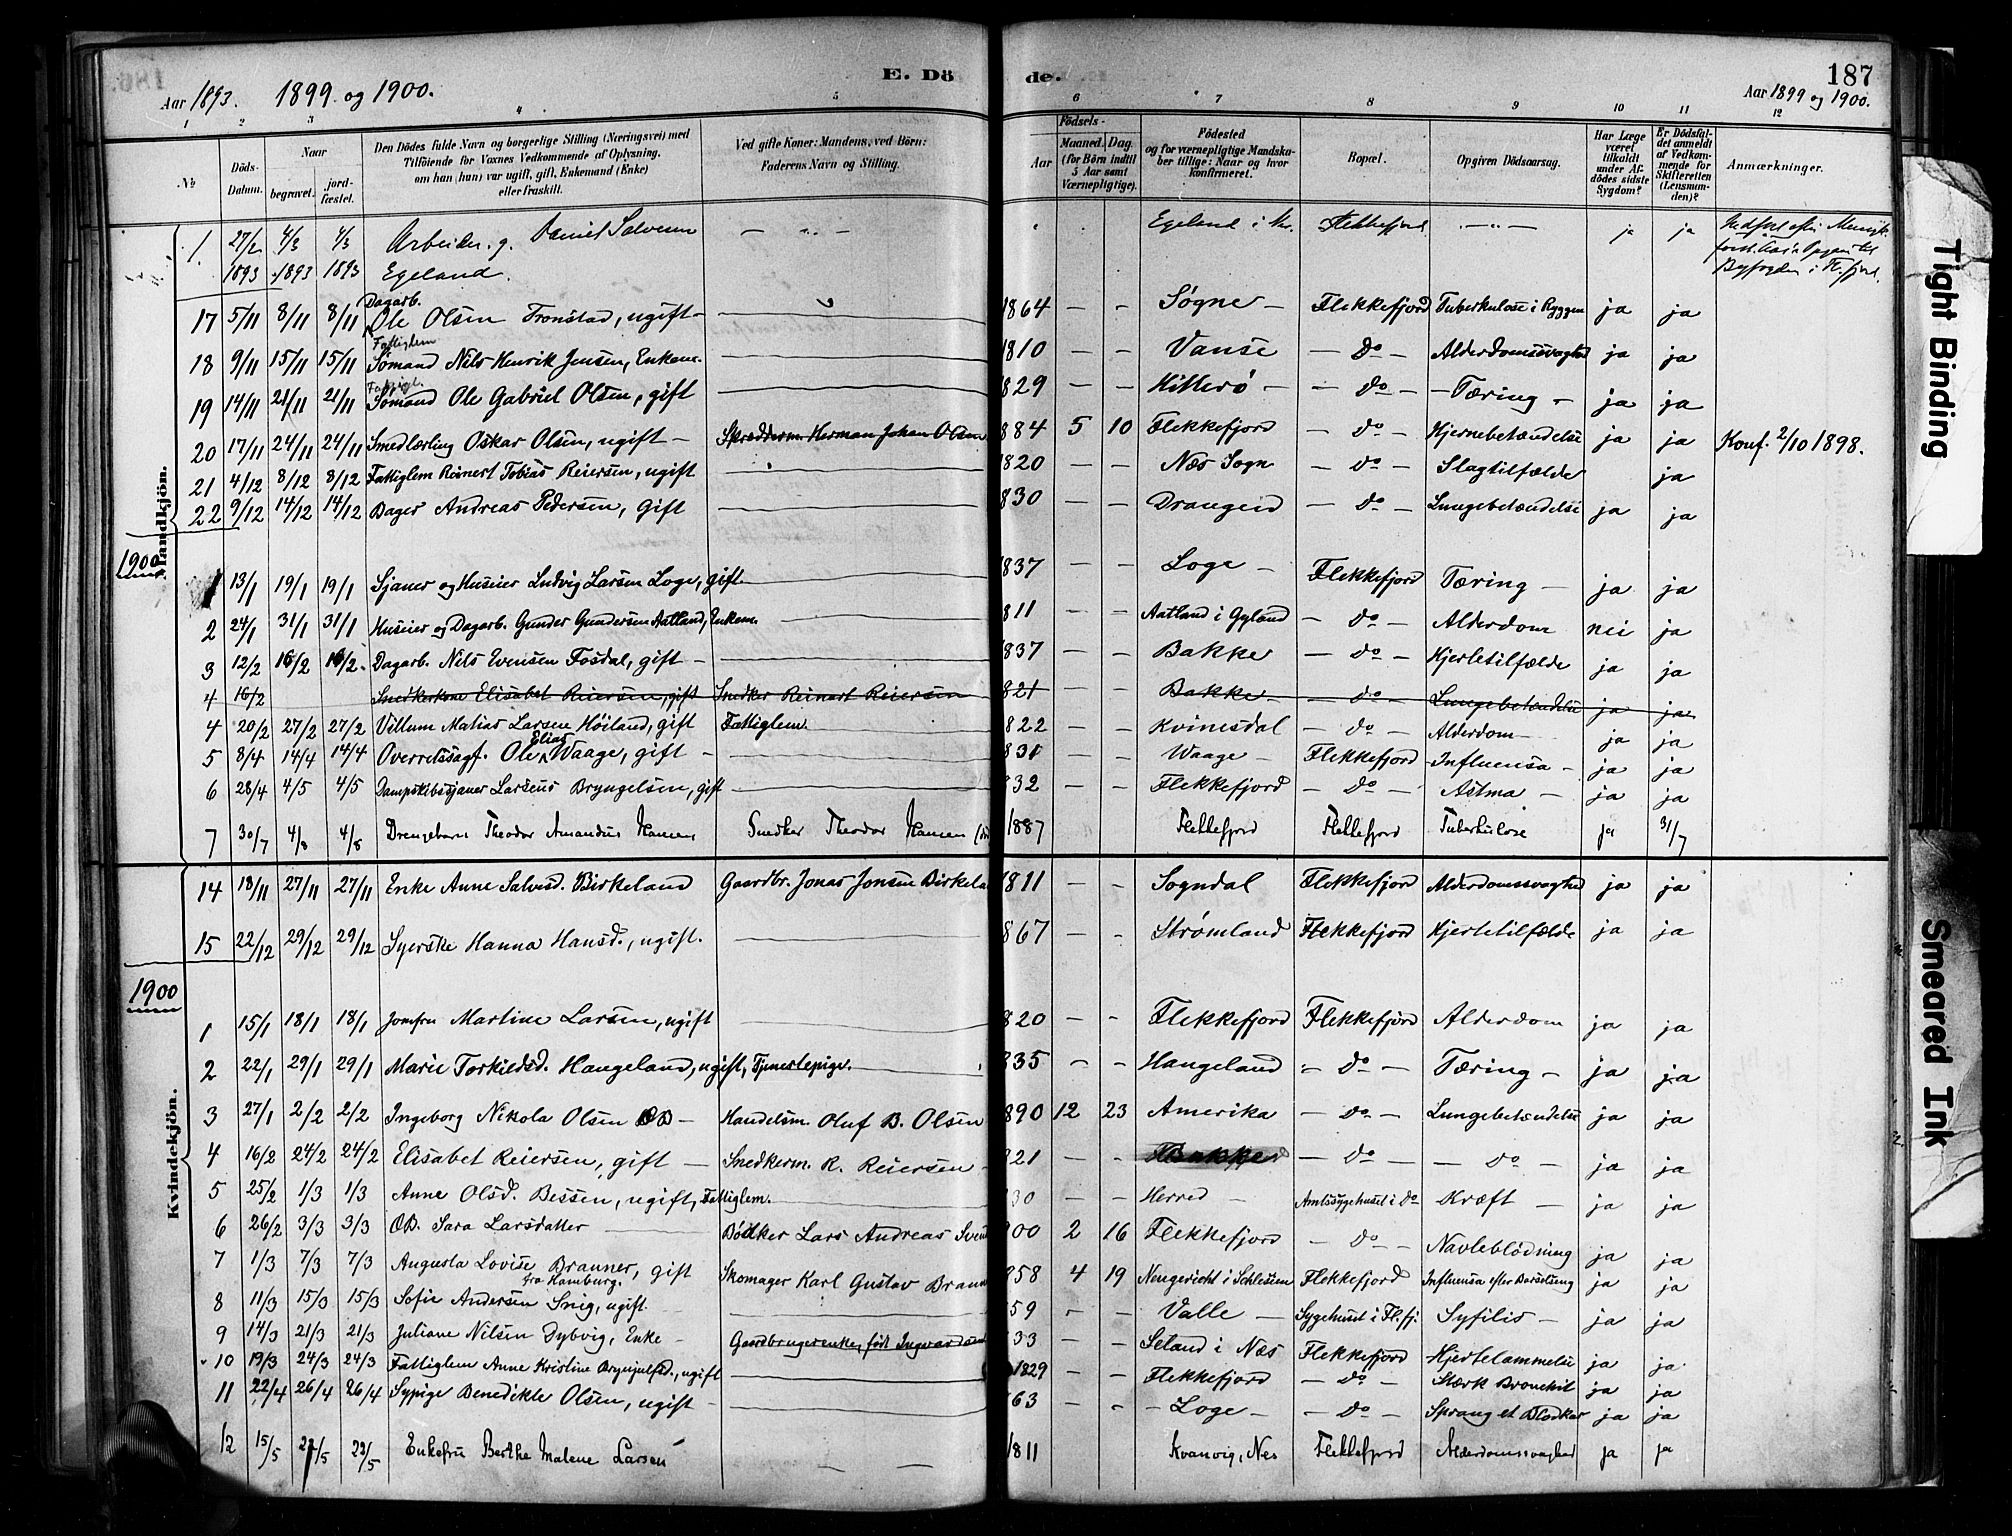 E. Dö de. 187
Aar 1893. 1899 og 1900. Aar 1899 og 1900.
1 2 3 4 5 6 7 8 9 10 11 12
№ Döds-Datum. Naar begravet. jordfæstet. Den Dödes fulde Navn og borgerlige Stilling (Næringsvei) med Tilföiende for Voxnes Vedkommende af Oplysning, om han (hun) var ugift, gift, Enkemand (Enke) eller fraskilt. Ved gifte Koner: Mandens, ved Börn: Faderens Navn og Stilling. Födsels- Aar Maaned. Dag. (for Börn indtil 5 Aar samt Værnepligtige). Födested og for værnepligtige Mandskaber tillige: Naar og hvor konfirmeret. Bopæl. Opgiven Dödsaarsag. Har Læge været tilkaldt under Afdödes sidste Sygdom? Er Dödsfaldet anmeldt af Vedkommende for Skifteretten (Lensmanden)? Anmærkninger.
Mandkjön.
1. 27/2 4/3 4/3 Arbeider. g. Daniel Salvesen — „ — Egeland i Flekkefjord — „ — ja ja
1893 1893 1893 Egeland.
17 5/11 8/11 8/11 Dagarb. Ole Olsen Tronstad, ugift — 1864 — — Søgne — Flekkefjord Tuberkulose i Ryggen ja ja
18 9/11 15/11 15/11 Fattiglem Sømand Nils Henrik Jensen, Enkem. 1810 — — Vanse — Do — Alderdomssvaghed ja ja
19 14/11 21/11 21/11 Sømand Ole Gabriel Olsen, gift 1829 — — Hitterø — — Do — — Tæring — ja ja
20 17/11 24/11 24/11 Smedlærling Oskar Olsen, ugift — Skrædderm. Herman Johan Olsen 884 5 10 Flekkefjord — Do — Hjernebetændelse ja ja Konf. 2/10 1898.
21 4/12 8/12 8/12 Fattiglem Reinert Tobias Reiersen, ugift 1820 — — Næs Sogn — Do — Slagtilfælde ja
22 9/12 14/12 14/12 Bager Andreas Pedersen, gift 830 — — Drangeid — Do — Lungebetændelse ja ja
1900
1 13/1 19/1 19/1 Sjauer og Huseier Ludvig Larsen Loge, gift. 1837 — — Loge — Flekkefjord Tæring — ja ja
2 24/1 31/1 31/1 Huseier og Dagarb. Gunder Gundersen Aatland, Enkem. 811 — — Aatland i Gyland — Do — Alderdom nei ja
3 12/2 16/2 16/2 Dagarb. Nils Evensen Fosdal, gift — 837 — — Bakke — Do — Hjertetilfælde ja ja
4 16/2 Snedkerkone Elisabet Reiersen, gift Snedker Reinert Reiersen 821 — — Bakke — Do — Lungebetændelse ja ja
4 20/2 27/2 27/2 Villum Matias Larsen Høiland, gift Fattiglem. 822 — — Kvinesdal — Do — Alderdom — ja ja
5 8/4 14/4 14/4 Overretssagf. Ole Elias Waage, gift — 831 — — Waage — Flekkefjord — Influensa — ja ja
6 28/4 4/5 4/5 Dampskibssjauer Larseus Bryngelsen, gift 832 — — Flekkefjord — Do — Astma — ja ja
7 30/7 4/8 4/8 Drengebarn Theodor Amandus Hansen Snedker Theodor Hansen 1887 Flekkefjord Flekkefjord Tuberkulose ja 31/7
Kvindekjön.
14 18/11 27/11 27/11 Enke Anne Salvesd. Birkeland Gaardbr. Jonas Jonsen Birkela 1811 — — Sogndal Flekkefjord Alderdomssvaghed ja ja
15 22/12 29/12 29/12 Syerske Hanna Hansd., ugift. 867 — — Strømland Flekkefjord Hjertetilfælde ja ja
1900
1 15/1 18/1 18/1 Jomfru Martine Larsen, ugift 820 — — Flekkefjord Flekkefjord Alderdom ja ja
2 22/1 29/1 29/1 Marie Torkildsd. Hangeland, ugift, Tjenestepige. 835 — — Hangeland — Do — Tæring — ja ja
3 27/1 2/2 2/2 Ingeborg Nikola Olsen — Handelsm. Oluf B. Olsen 890 12 23 Amerika — Do — Lungebetændelse ja ja
4 16/2 24/2 24/2 Elisabet Reiersen, gift — Snedkerm. R. Reiersen — 821 — — — Do — — Do — ja ja
5 25/2 1/3 1/3 Anne Olsd. Bessen, ugift, Fattiglem. 30 — — Herred — Amtssygehuset i Do Kræft — ja ja
6 26/2 3/3 3/3 ÆB. Sara Larsdatter Bødker Lars Andreas Svend 900 2 16 Flekkefjord — Do — Navleblødning ja ja
7 1/3 7/3 7/3 Augusta Lovise Branner, gift fra Hamburg. Skomager Karl Gustav Brann 858 4 19 Neugericht i Schlesien Flekkefjord Influensa efter Barselseng ja ja
8 11/3 15/3 15/3 Sofie Andersen Snig, ugift. 59 — — Valle — Sygehuset i Fl.fj. Syfilis — ja ja
9 14/3 21/3 21/3 Juliane Nilsen Dybvig, Enke — Gaardbrugerenke, født Ingvar 33 — — Seland i Næs Flekkefjord Hjertelammelse ja ja
10 19/3 24/3 24/3 Fattiglem Anne Kristine Brynjulfsd., ugift 1829 — — Flekkefjord — Do — Stærk Bronchit ja ja
11 22/4 26/4 26/4 Sypige Benedikte Olsen, ugift — 63 — — — Loge — — Do — Sprang et Blodkar ja ja
12 15/5 2/5 23/5 Enkefru Berthe Malene Larsen — — 1811 Kvanvig, Nes Flekkefjord Alderdomssvaghed ja ja
Tight Binding
Smeared Ink